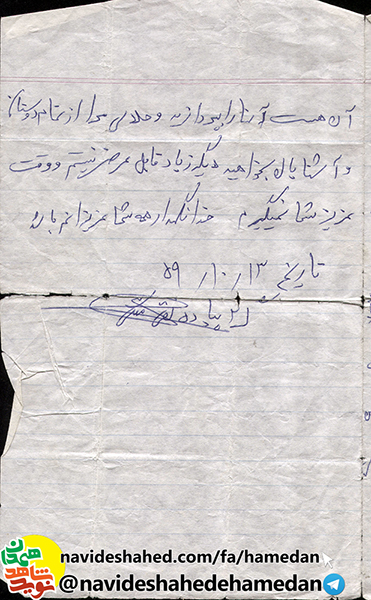 آن هست آنرا بپردازید و حلالی مرا از تمام دوستان
و آشنایان بخواهید دیگر زیاد قابل عرض نیستم و وقت
عزیز شما نمیگیرم خدا نگهدار همه شما عزیزانم باد
تاریخ ۱۳/۱۰/۵۹
نوید شاهد
همدان
navideshahed.com/fa/hamedan
@navideshahedehamedan